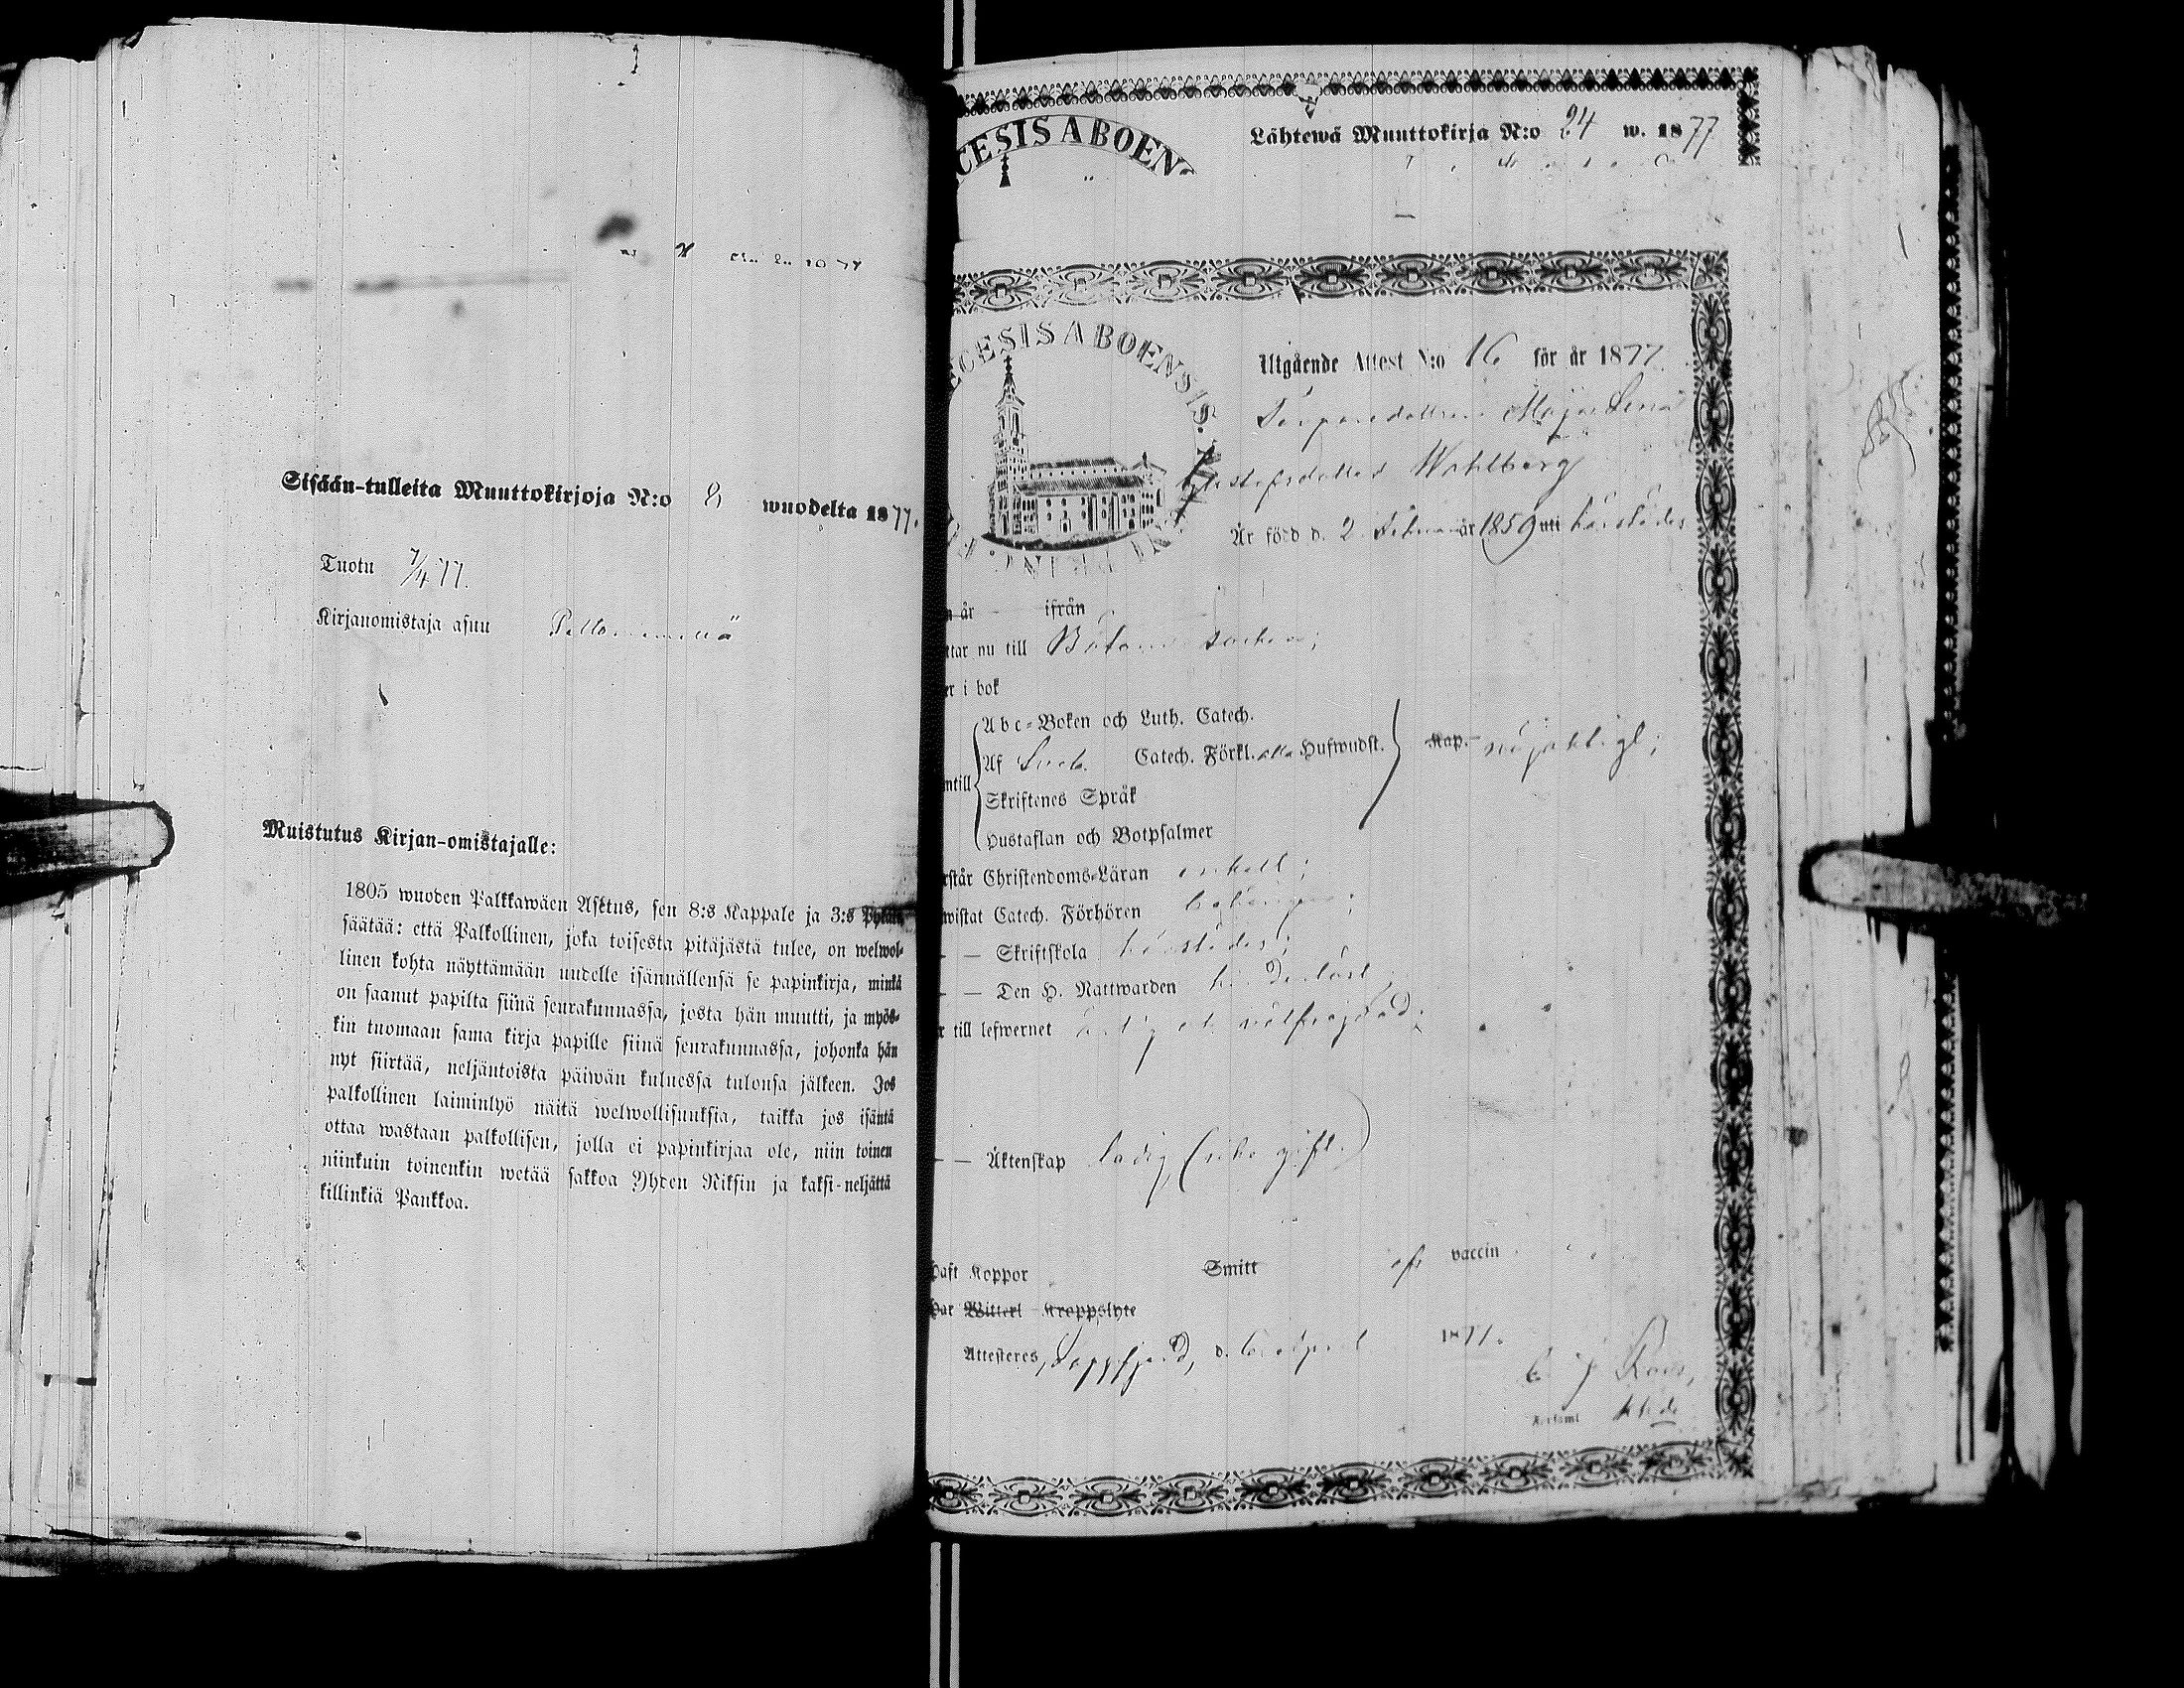 Sisään-tulleita Muuttokirjoja N:o 8 wuodelta 1877.
Tuotu 7/4 77.
Kirjanomistaja asuu
Muistutus Kirjan-omistajalle:
1805 wuoden Palkkawäen Asetus, sen 8:s Kappale ja 3:s Pykälä
säätää: että Palkollinen, joka toisesta pitäjästä tulee, on welwol-
linen kohta näyttämään uudelle isännällensä se papinkirja, minkä
on saanut papilta siinä seurakunnassa, josta hän muutti, ja myös-
kin tuomaan sama kirja papille siinä seurakunnassa, johonka hän
nyt siirtää, neljäntoista päiwän kuluessa tulonsa jälkeen. Jos
palkollinen laiminlyö näitä welwollisuuksia, taikka jos isäntä
ottaa wastaan palkollisen, jolla ei papinkirjaa ole, niin toinen
niinkuin toinenkin wetää sakkoa Yhden Riksin ja kaksi-neljättä
killinkiä Pankkoa.
CESIS ABOENS
Lähtewä Muuttokirja N:o 24 w. 1877
ECESIS ABOENSIS
Utgående Attest N:o 16 för år 1877.
Torparedottren Maja Lena
Gustafsdotter Wahlberg
Är född d. 2 Februari år 1859 uti härstädes
n år ifrån
ttar nu till sochen;
er i bok
Abc-Boken och Luth. Catech.
Af Sveb. Catech. Förkl. alla Hufwudst. Kap. nöjaktigt;
ntill
Skriftenes Språk
Hustaflan och Botpsalmer
rstår Christendoms-Läran enkelt;
wistat Catech. Förhören
— Skriftskola härstädes;
— Den H. Nattwarden
r till lefwernet
— Äktenskap ledig (icke gift.)
Haft Koppor Smitt vaccin
Har Wittert Kroppslyte
Attesteres, Lappfjerd, d. 6 April 1877.
Roos,